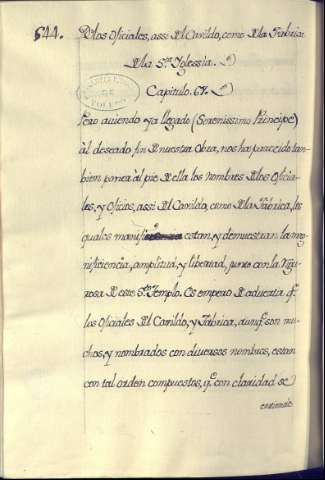 644. Dlos Oficiales, assi Dl Cavildo, como Dla Fabrica
Dla Sta Iglessia.
Capitulo. 67.
Pero auiendo ya llegado (Serenissimo Principe)
àl deseado fin D nuestra Obra, nos ha parecido tan-
bien poner àl pie D ella los nombres Dlos Oficia-
les, y Oficios, assi Dl Cavildo, como Dla Fabrica, los
quales manifi estan, y demuestran la mag-
nificencia, amplitud, y libertad, junto con la Rigu-
rosa D este Sto Templo. Es empero D aduertir q.e
los Oficiales Dl Cavildo, y Fabrica, aunq.e son mu-
chos, y nombrados con diuersos nombres, estan
con tal orden compuestos, q.e con claridad se
entiende